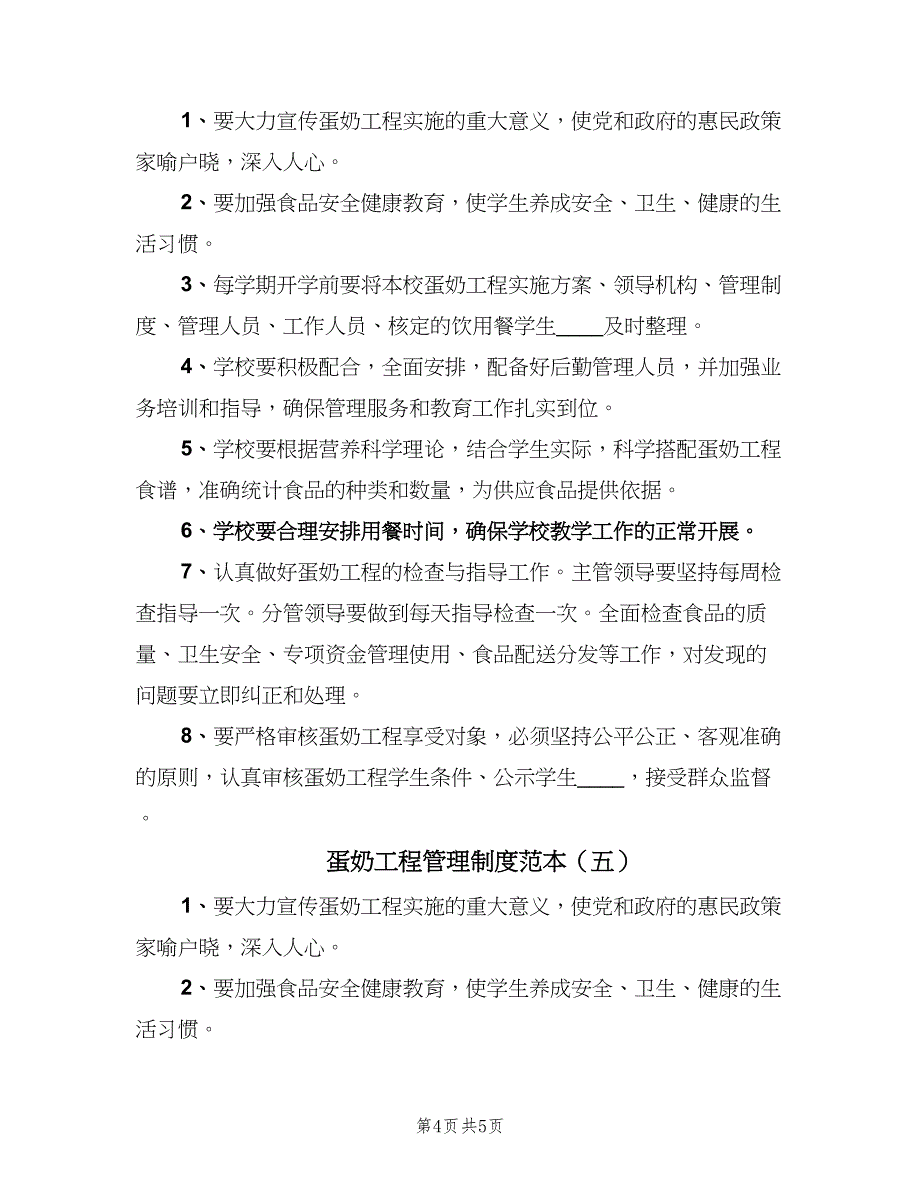 1、要大力宣传蛋奶工程实施的重大意义，使党和政府的惠民政策
家喻户晓，深入人心。
2、要加强食品安全健康教育，使学生养成安全、卫生、健康的生
活习惯。
3、每学期开学前要将本校蛋奶工程实施方案、领导机构、管理制
度、管理人员、工作人员、核定的饮用餐学生____及时整理。
4、学校要积极配合，全面安排，配备好后勤管理人员，并加强业
务培训和指导，确保管理服务和教育工作扎实到位。
5、学校要根据营养科学理论，结合学生实际，科学搭配蛋奶工程
食谱，准确统计食品的种类和数量，为供应食品提供依据。
6、学校要合理安排用餐时间，确保学校教学工作的正常开展。
7、认真做好蛋奶工程的检查与指导工作。主管领导要坚持每周检
查指导一次。分管领导要做到每天指导检查一次。全面检查食品的质
量、卫生安全、专项资金管理使用、食品配送分发等工作，对发现的
问题要立即纠正和处理。
8、要严格审核蛋奶工程享受对象，必须坚持公平公正、客观准确
的原则，认真审核蛋奶工程学生条件、公示学生____，接受群众监督
。
蛋奶工程管理制度范本（五）
1、要大力宣传蛋奶工程实施的重大意义，使党和政府的惠民政策
家喻户晓，深入人心。
2、要加强食品安全健康教育，使学生养成安全、卫生、健康的生
活习惯。
第4页 共5页